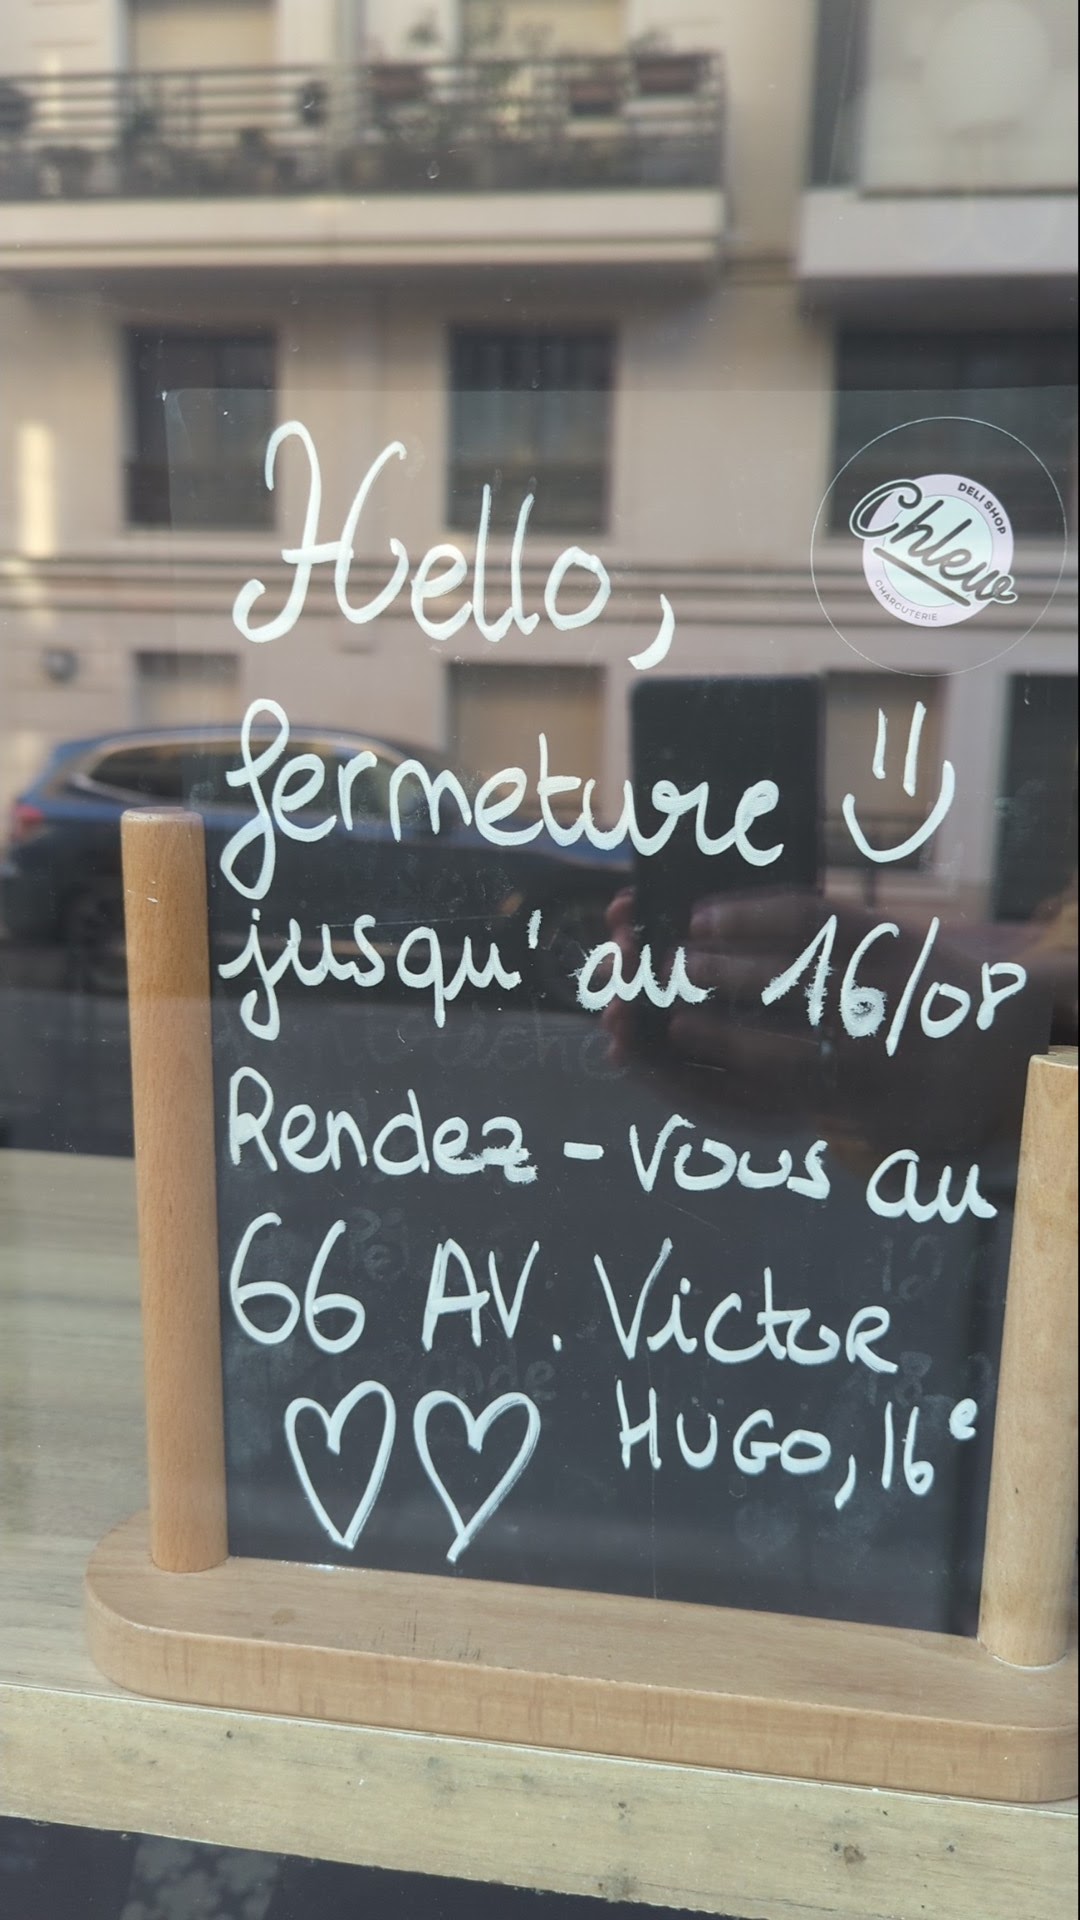 Hello,
DELI SHOP
Chleuo
CHARCUTERIE
fermeture
jusqu'au 16/08
Rendez-vous au
66 AV. Victor
HUGO, 16e